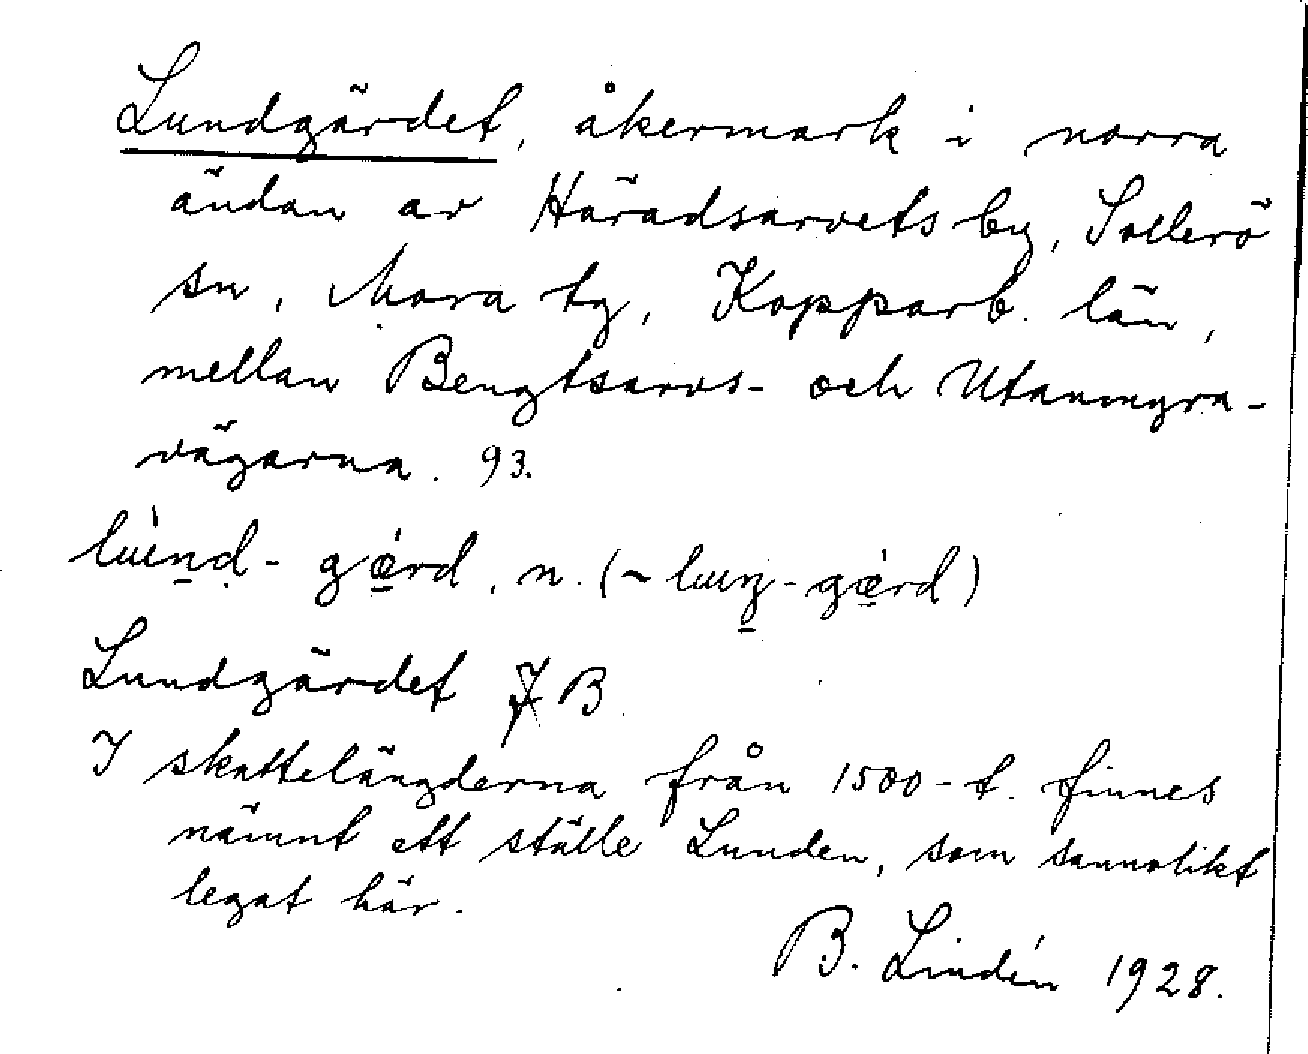 Lundgärdet, åkermark i norra
ändan av Häradsarvets by, Sollerö
sn, Mora tg, Kopparb. län,
mellan Bengtsarvs- och Utanmyra-
vägarna. 93.
n.
Lundgärdet B
I skattelängderna från 1500-t. finnes
nämnt ett ställe Lunden, som sannolikt
legat här.
B. Lindén 1928.